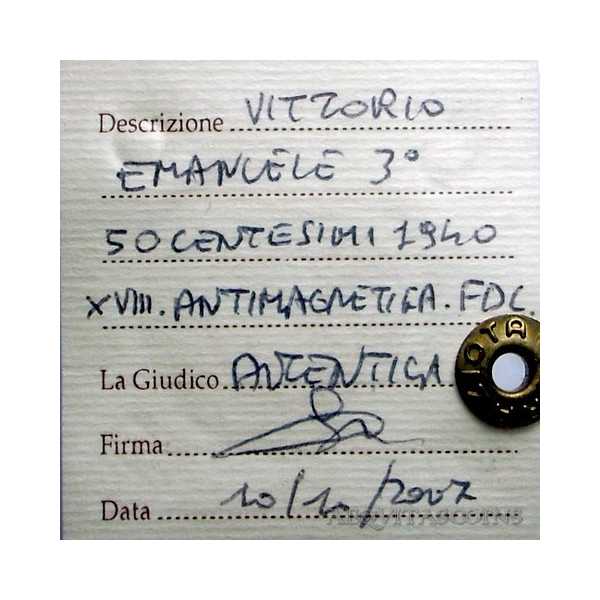 Descrizione VITTORIO
EMANUELE 3°
50 CENTESIMI 1940
XVIII. ANTIMAGNETICA. FDC.
La Giudico AUTENTICA
Firma
Data 10/10/2007
AEQVITASCOINS